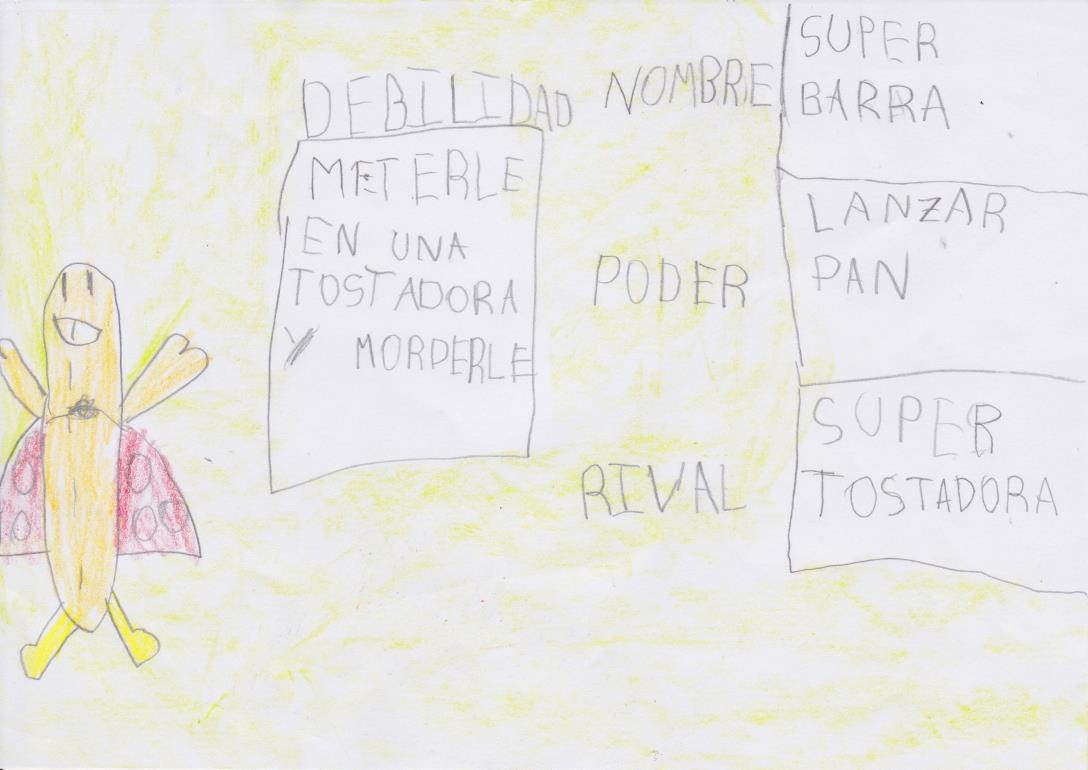 DEBILIDAD
METERLE
EN UNA
TOSTADORA
Y MORDERLE
NOMBRE
SUPER
BARRA
PODER
LANZAR
PAN
RIVAL
SUPER
TOSTADORA